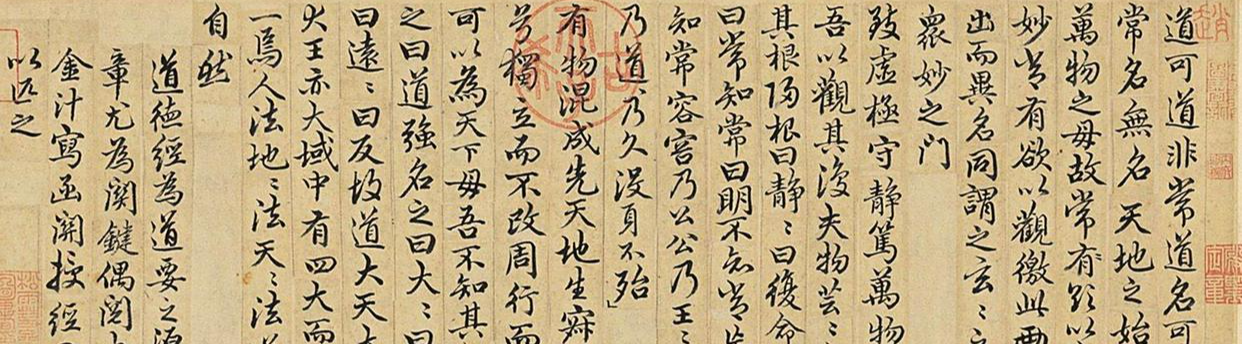 道可道非常道名可
常名無名天地之始
萬物之母故常有欲以
妙常有欲以觀徼此兩
出而異名同謂之玄〻
衆妙之門
致虛極守靜篤萬物
吾以觀其復夫物芸〻
其根歸根曰靜〻曰復命
曰常知常曰明不知常
知常容容乃公公乃王〻
乃道〻乃久沒身不殆
有物混成先天地生寂
兮獨立而不改周行而
可以為天下母吾不知其
之曰道強名之曰大〻曰
曰遠〻曰反故道大天
大王亦大域中有四大而
一焉人法地〻法天〻法
自然
道德經為道要之源
章尤為関鍵偶閱
金汁寫函關授經
以匹之